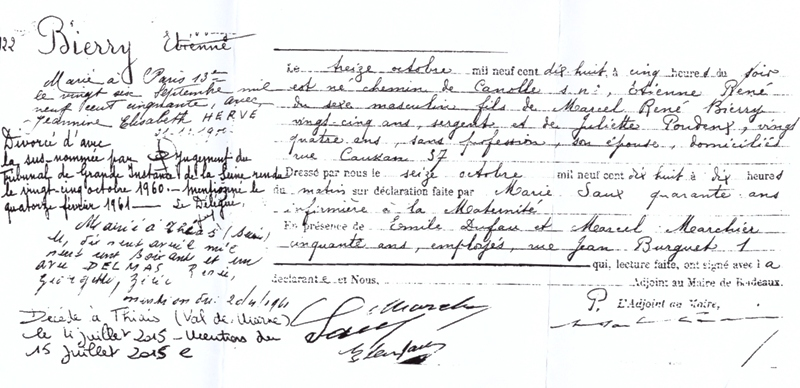 122 Bierry Etienne
Marié à Paris 13e
le vingt six Septembre mil
neuf cent cinquante, avec
Jeannine Elisabeth HERVE
Divorcé d'avec
la sus-nommée par Jugement du
Tribunal de Grande Instance de la Seine rendu
le vingt-cinq octobre 1960. Mentionné le
quatorze février 1961. Le Délégué.
Marié à Thiais (Seine)
le dix neuf avril mil
neuf cent soixante et un
avec DELMAS Renée,
Georgette,
mention du: 20/4/1961
Décédé à Thiais (Val de Marne)
le 11 juillet 2015 - Mention du
15 juillet 2015
Le treize octobre mil neuf cent dix huit, à cinq heures du soir
est né chemin de Canolle s.n:, Etienne René
du sexe masculin fils de Marcel René Bierry
vingt-cinq ans, sergent et de Juliette Poudens, vingt
quatre ans, sans profession, son épouse, domiciliés
rue Caussan 37
Dressé par nous le seize octobre mil neuf cent dix huit à dix heures
du matin sur déclaration faite par Marie Saux quarante ans
infirmière à la Maternité
En présence de Emile Dufau et Marcel Marchier
cinquante ans, employés, rue Jean Burguet 1
qui, lecture faite, ont signé avec la
déclarante et Nous, Adjoint au Maire de Bordeaux.
P. L'Adjoint au Maire,